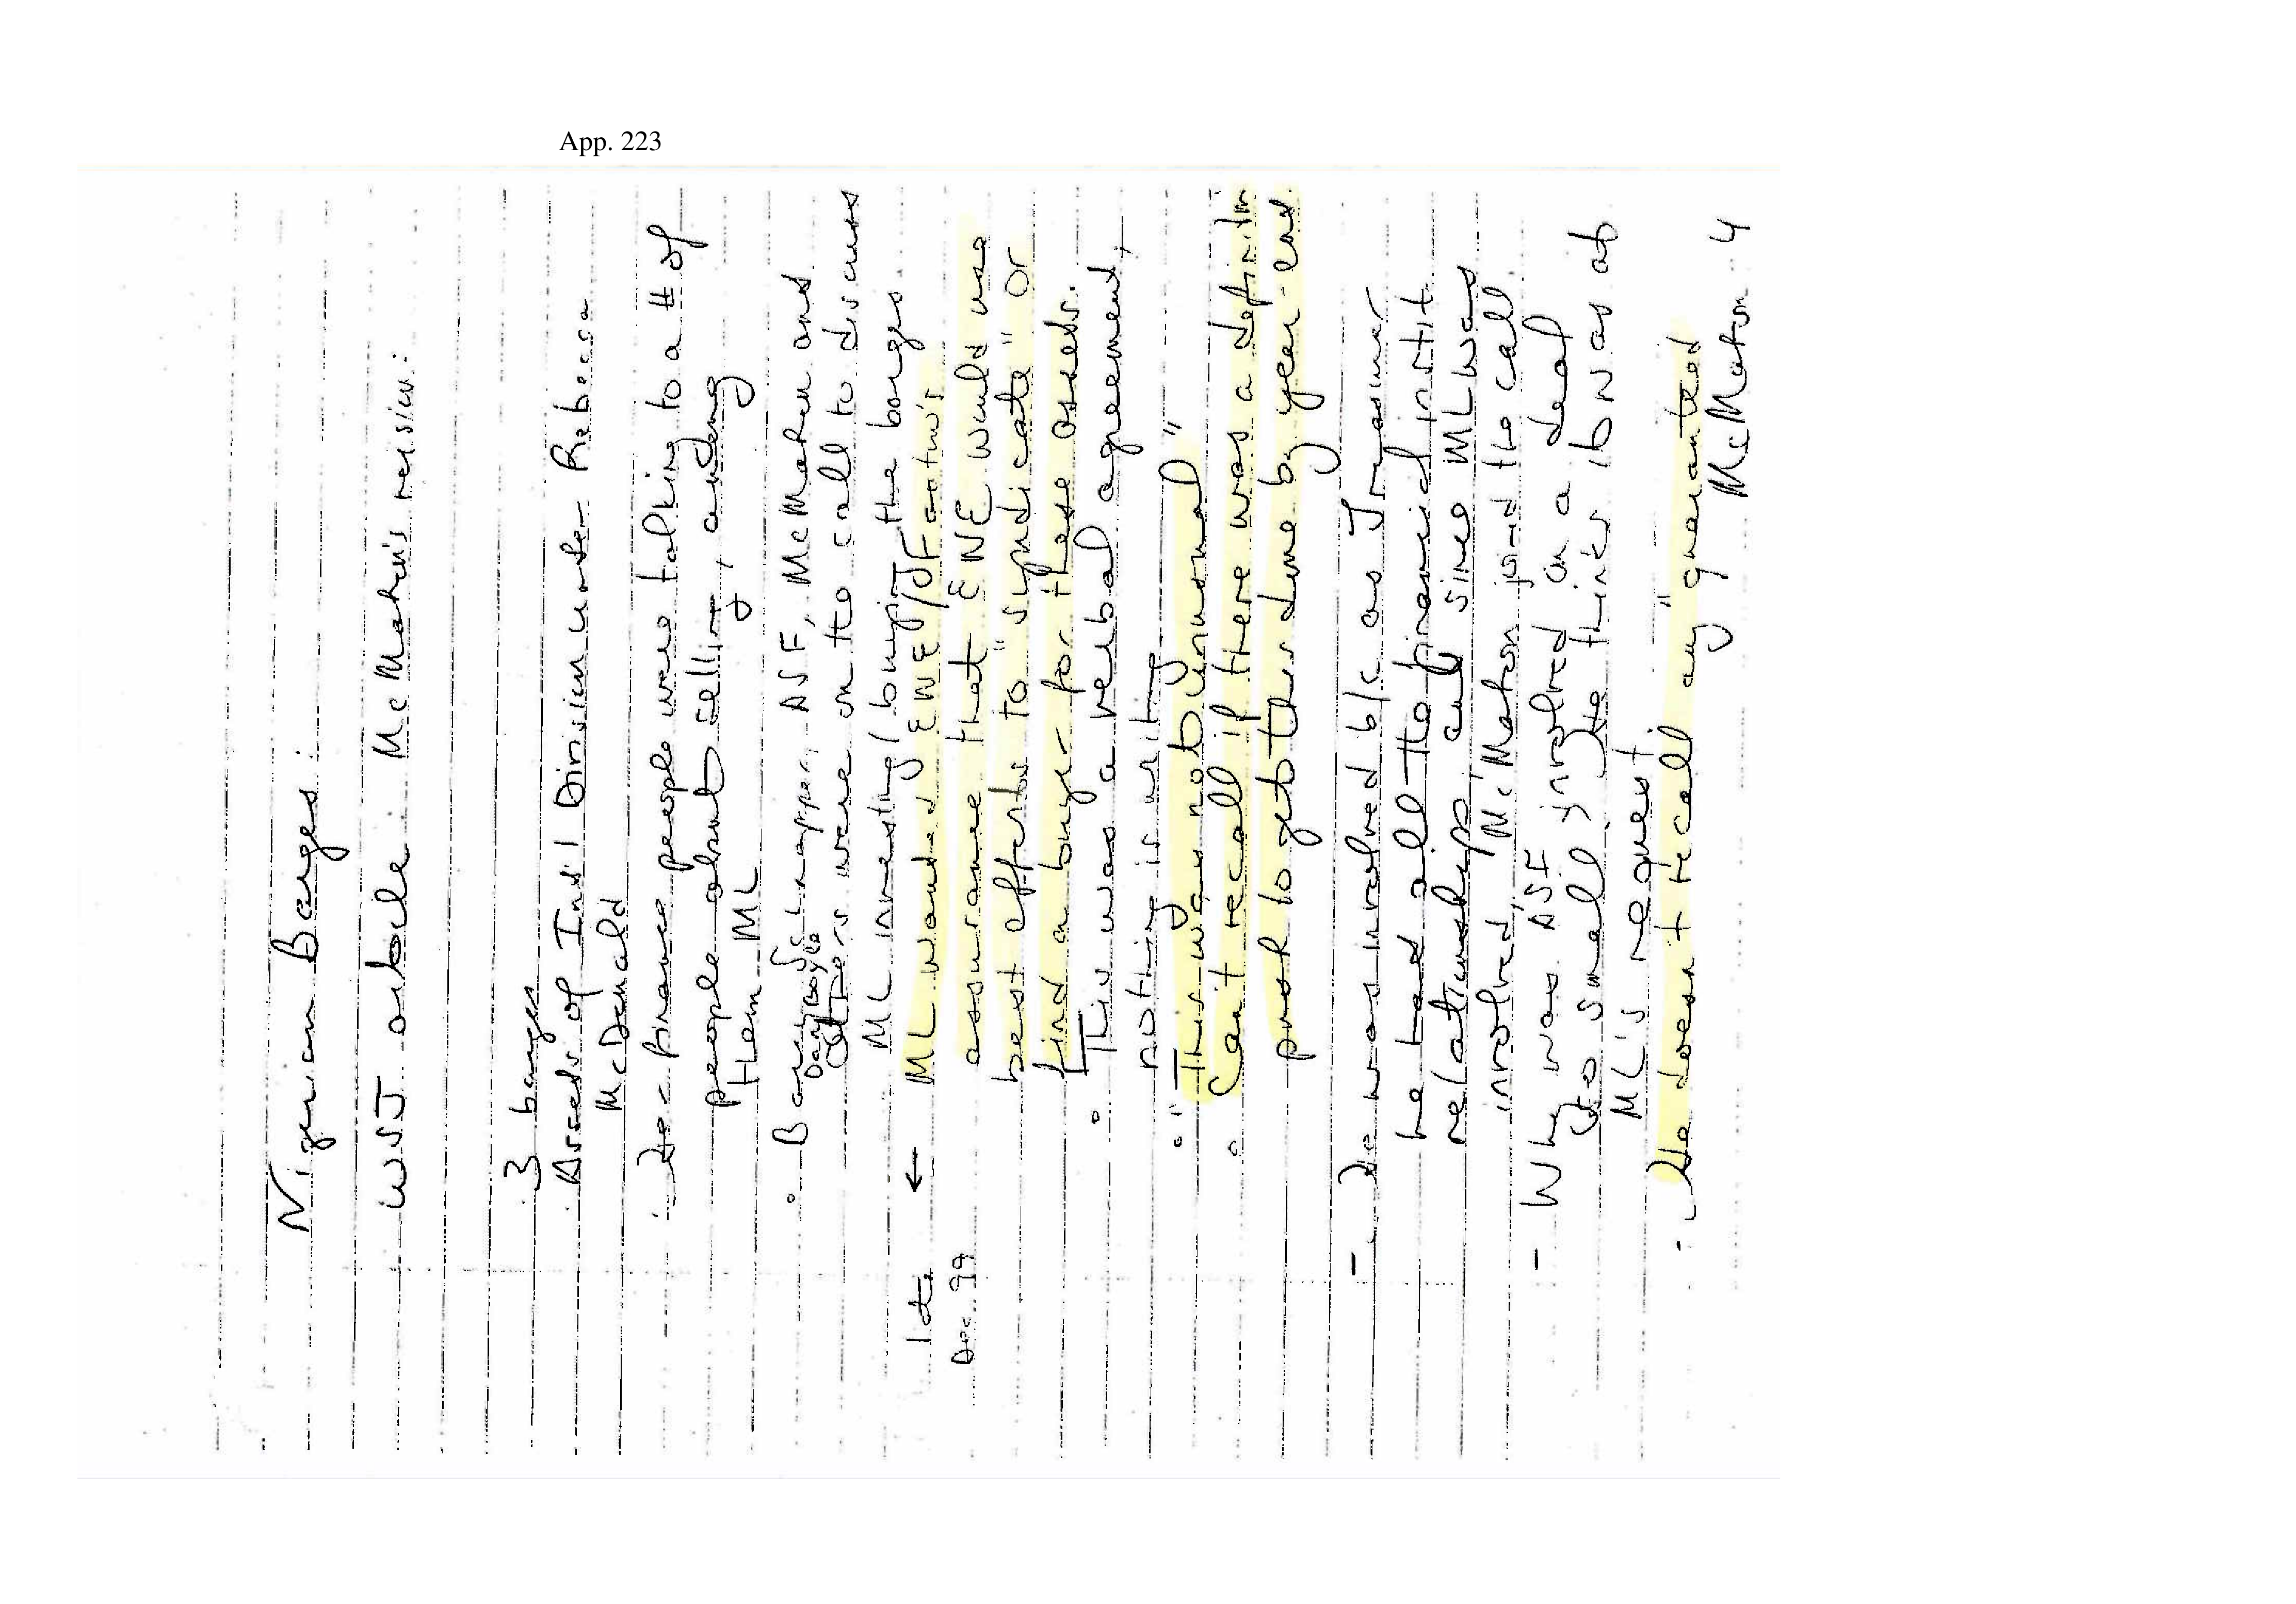 App. 223
Nigerian Barges:
WSJ article: McMahon's version:
3 barges
Assets of Int'l Division under Rebecca
McDonald
Her finance people were talking to a # of
people about selling, among
them ML
Bayly, Schuyler, ASF, McMahon and
Dan Boyle
others were on the call to discuss
ML investing / buying the barges
late Dec 99 ← ML wanted ENE/JFortin's
assurance that ENE would use
best efforts to "syndicate" or
find a buyer for these assets.
This was a verbal agreement,
nothing is writing
"This was not unusual"
Can't recall if there was a definite
push to get this done by year-end
- He was involved b/c as Treasurer
he had all the financial instit.
relationships and since ML was
involved, McMahon joined the call
- Why was ASF involved in a deal
so small? He thinks it was at
ML's request.
- He doesn't recall any "guaranteed
McMahon 4